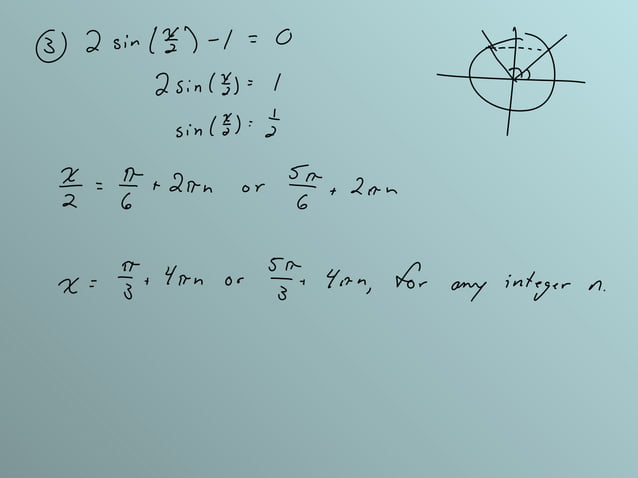 ③ 2 sin(x/2) - 1 = 0
2 sin(x/2) = 1
sin(x/2) = 1/2
x/2 = π/6 + 2πn or 5π/6 + 2πn
x = π/3 + 4πn or 5π/3 + 4πn, for any integer n.